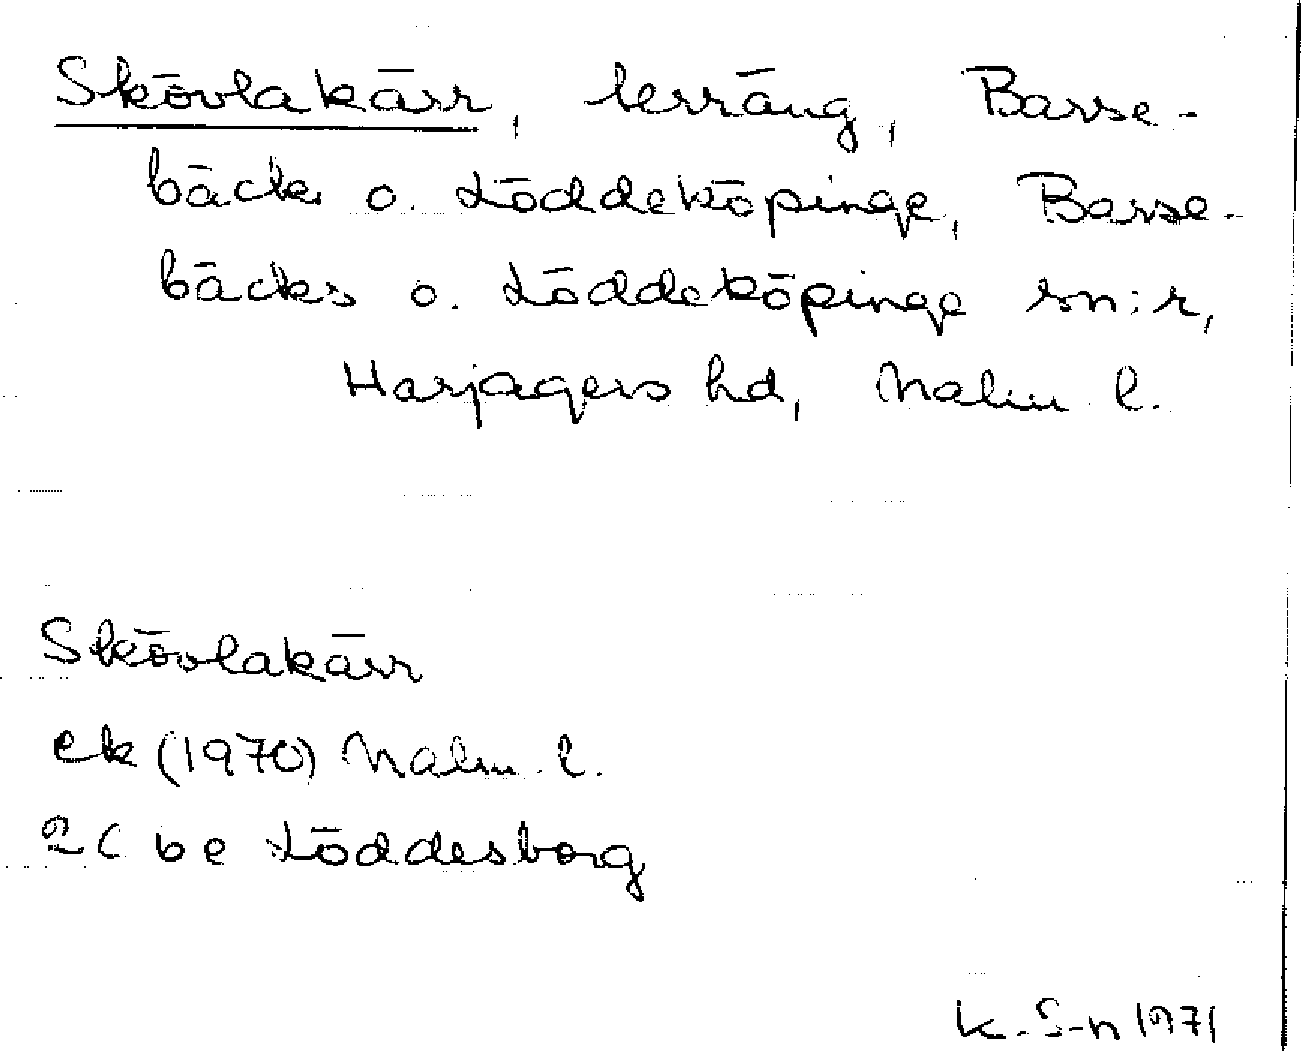 Skövlakärr, terräng, Barse-
bäck o. Löddeköpinge, Barse-
bäcks o. Löddeköpinge sn:r,
Harjagers hd, Malm. l.
Skövlakärr
ek (1970) Malm. l.
2C be Löddesborg
K. S-n 1971